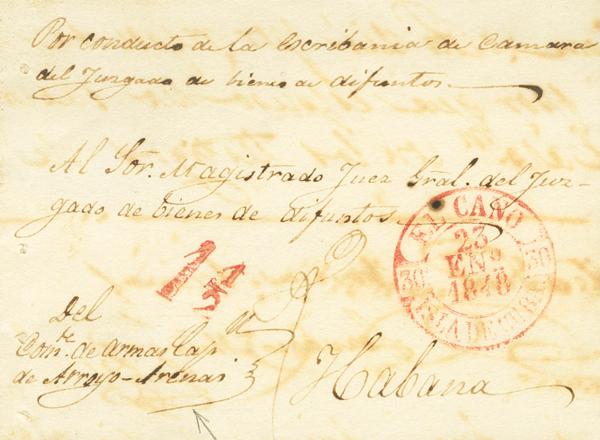 Por conducto de la Escribania de Camara
del Juzgado de bienes de difuntos.
Al Sõr. Magistrado Juez Gral. del Juz-
gado de bienes de difuntos.
EL CANO
23
ENº
1848
30
30
ISLA DE CUBA
1½
Del
Comte. de armas Cap
de Arroyo-Arenas
Habana